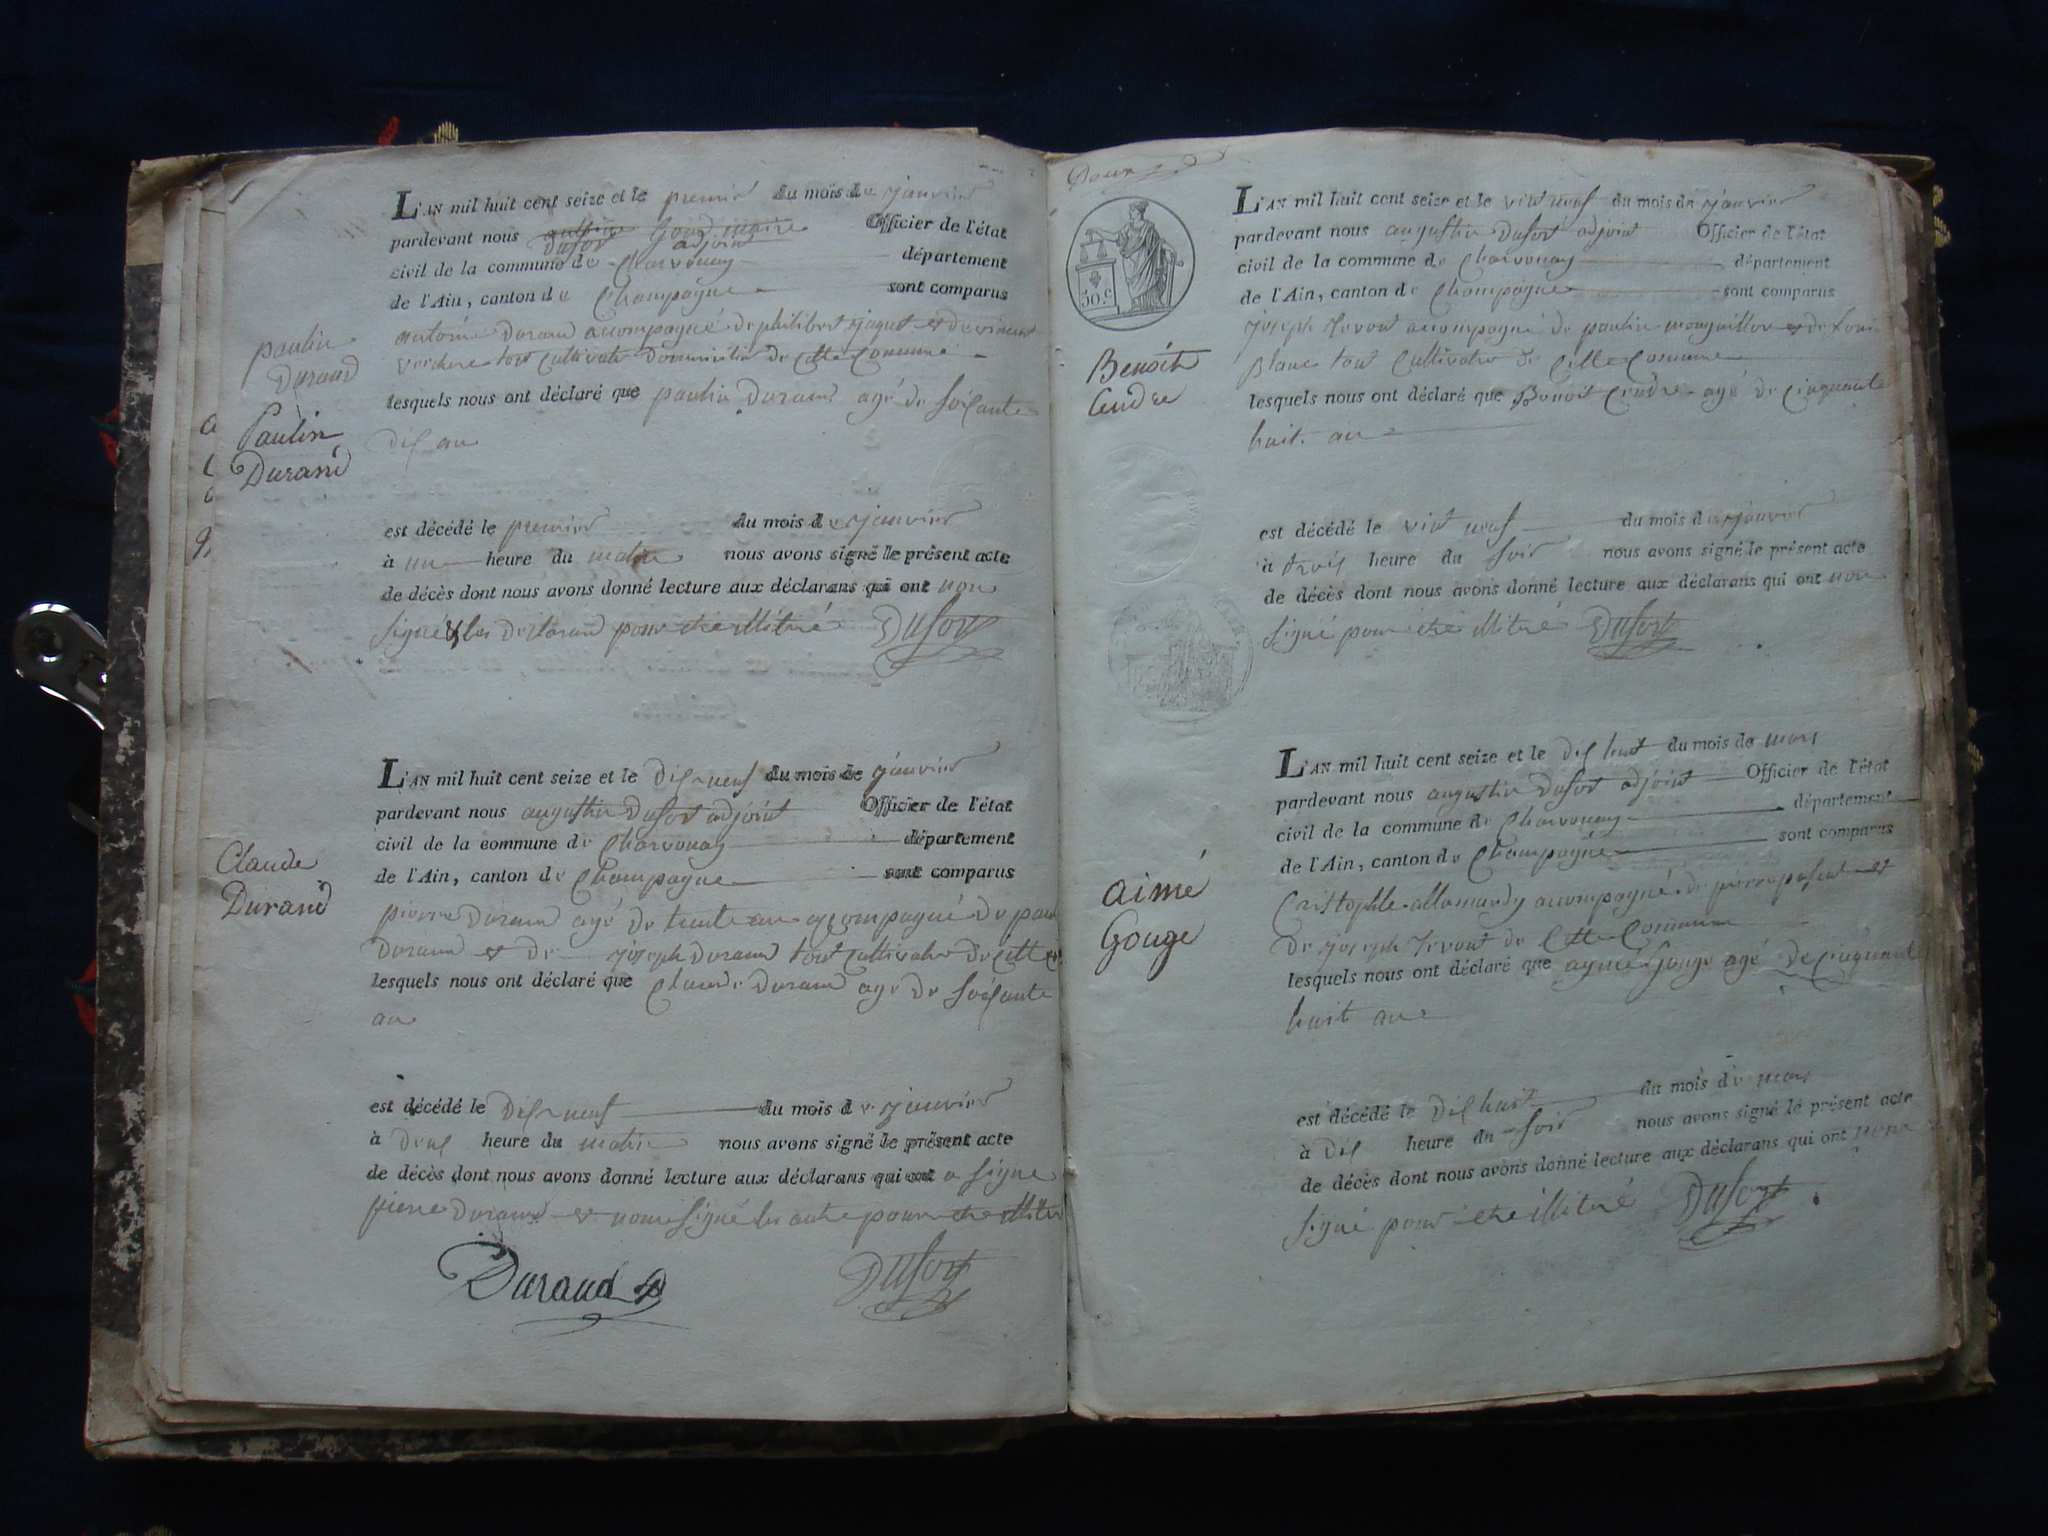 paulin
Durand
Paulin
Durand
L'AN mil huit cent seize et le premier du mois de janvier
pardevant nous Dufort adjoint Officier de l'état
civil de la commune de Charvonay département
de l'Ain, canton de Champagne sont comparus
antoine Durand accompagné de philibert jaquet et de vincent
verchere tout cultivatr Domicilié de cette Comune
lesquels nous ont déclaré que paulin Durand agé de soisante
dis an
est décédé le premier du mois de janvier
à une heure du matin nous avons signé le présent acte
de décès dont nous avons donné lecture aux déclarans qui ont non
signé les declarant pour etre illitiré Dufort
Claude
Durand
L'AN mil huit cent seize et le dis neuf du mois de janvier
pardevant nous augustin Dufort adjoint Officier de l'état
civil de la commune de Charvonay département
de l'Ain, canton de Champagne sont comparus
pierre Durand agé de trente an accompagné de paul
Durand et de joseph Durand tout cultivatr de cette
lesquels nous ont déclaré que Claude Durand agé de soisante
an
est décédé le dis neuf du mois de janvier
à deus heure du matin nous avons signé le présent acte
de décès dont nous avons donné lecture aux déclarans qui ont a signé
pierre Durand et non signé les autre pour etre illitiré
Durand Dufort
Doux
30.c
Benoit
Cendre
L'AN mil huit cent seize et le vint neuf du mois de janvier
pardevant nous augustin Dufort adjoint Officier de l'état
civil de la commune de Charvonay département
de l'Ain, canton de Champagne sont comparus
joseph Jevout accompagné de paulin et de Loui
Blanc tout Cultivatr de Cette Comune
lesquels nous ont déclaré que Benoit Cendre agé de cinquante
huit an
est décédé le vint neuf du mois de janvier
à trois heure du soir nous avons signé le présent acte
de décès dont nous avons donné lecture aux déclarans qui ont non
signé pour etre illitiré Dufort
aimé
Gouge
L'AN mil huit cent seize et le dis huit du mois de mars
pardevant nous augustin Dufort adjoint Officier de l'état
civil de la commune de Charvonay département
de l'Ain, canton de Champagne sont comparus
Cristophle allemandy accompagné de pierre pascal et
de joseph Jevout de Cette Commune
lesquels nous ont déclaré que aymé Gouge agé de cinquante
huit an
est décédé le dis huit du mois de mars
à dis heure du soir nous avons signé le présent acte
de décès dont nous avons donné lecture aux déclarans qui ont non
signé pour etre illitiré Dufort